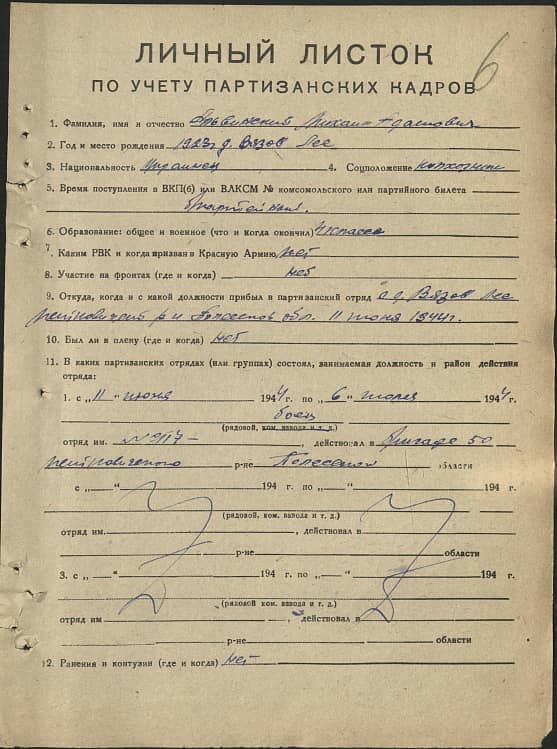 6
ЛИЧНЫЙ ЛИСТОК
ПО УЧЕТУ ПАРТИЗАНСКИХ КАДРОВ
1. Фамилия, имя и отчество Михаил Адамович
2. Год и место рождения 1923 г д. Вязов Лес
3. Национальность Украинец 4. Соцположение колхозник
5. Время поступления в ВКП(б) или ВЛКСМ № комсомольского или партийного билета
безпартейный
6. Образование: общее и военное (что и когда окончил) 4 класса
7. Каким РВК и когда призван в Красную Армию нет
8. Участие на фронтах (где и когда) нет
9. Откуда, когда и с какой должности прибыл в партизанский отряд с д. Вязов Лес
р-н Полесской обл. 11 июня 1944 г.
10. Был ли в плену (где и когда) нет
11. В каких партизанских отрядах (или группах) состоял, занимаемая должность и район действия
отряда:
1. с „ 11 “ июня 194 4 г. по „ 6 “ июля 194 4 г.
боец
(рядовой, ком. взвода и т. д.)
отряд им. , действовал в бригаде 50
р-не Полесской области
с „ “ 194 г. по „ “ 194 г.
(рядовой, ком. взвода и т. д.)
отряд им , действовал в
р-не области
3. с „ “ 194 г. по „ “ 194 г.
(рядовой ком. взвода и т. д.)
отряд им , действовал в
р-не области
12. Ранения и контузии (где и когда) нет